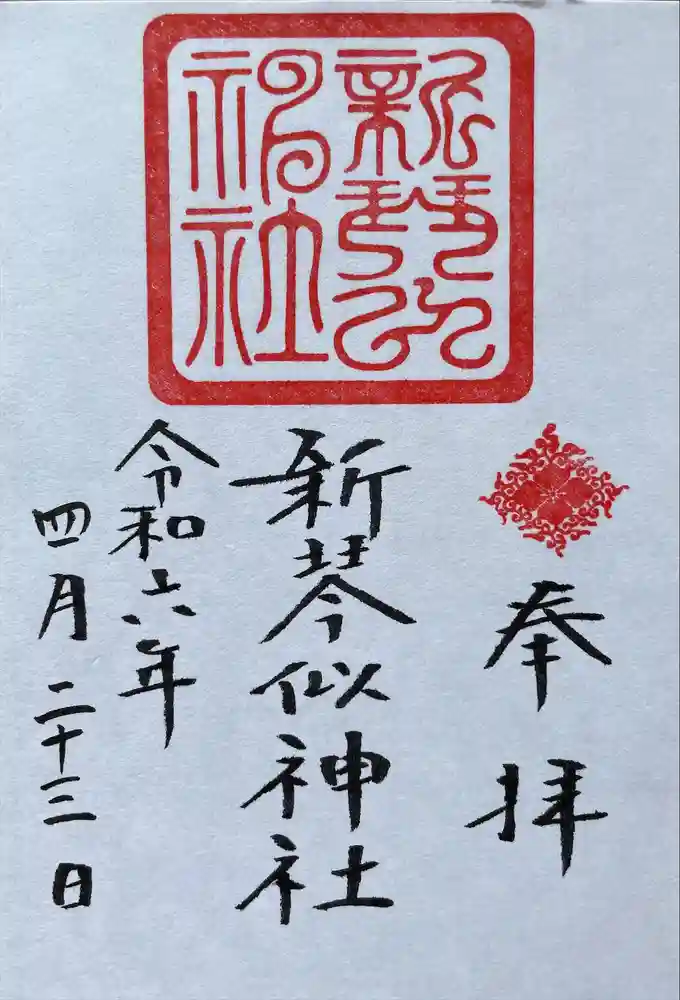 奉拝
新琴似神社
令和六年
四月二十三日
新琴似
神社